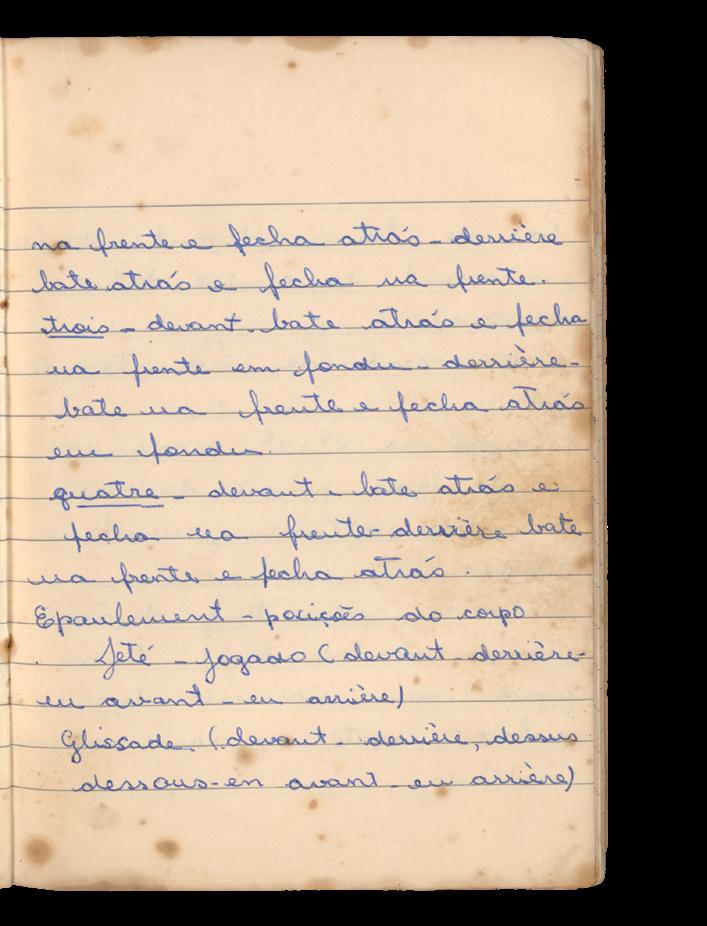 na frente e fecha atrás - derrière
bate atrás e fecha na frente.
trois - devant - bate atrás e fecha
na frente em fondu - derrière -
bate na frente e fecha atrás
em fondu.
quatre - devant - bate atrás e
fecha na frente - derrière bate
na frente e fecha atrás.
Epaulement - pozições do corpo
Jeté - jogado (devant - derrière -
en avant - en arrière)
Glissade. (devant - derrière, dessus
dessous - en avant - en arrière)